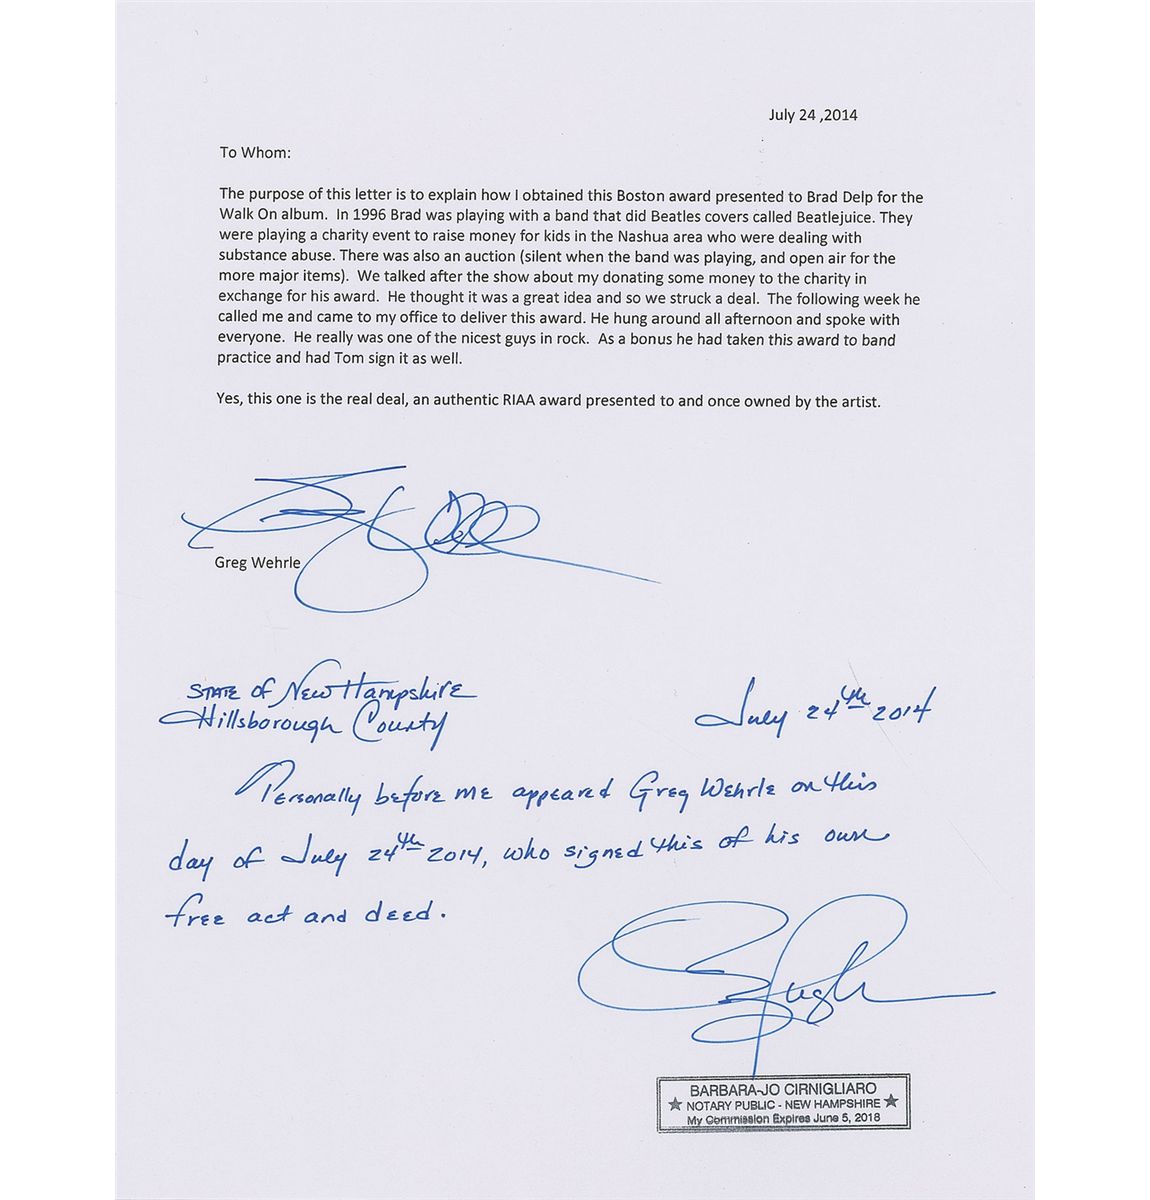 July 24 ,2014
To Whom:
The purpose of this letter is to explain how I obtained this Boston award presented to Brad Delp for the
Walk On album.  In 1996 Brad was playing with a band that did Beatles covers called Beatlejuice. They
were playing a charity event to raise money for kids in the Nashua area who were dealing with
substance abuse. There was also an auction (silent when the band was playing, and open air for the
more major items).  We talked after the show about my donating some money to the charity in
exchange for his award.  He thought it was a great idea and so we struck a deal.  The following week he
called me and came to my office to deliver this award. He hung around all afternoon and spoke with
everyone.  He really was one of the nicest guys in rock.  As a bonus he had taken this award to band
practice and had Tom sign it as well.
Yes, this one is the real deal, an authentic RIAA award presented to and once owned by the artist.
Greg Wehrle
State of New Hampshire
Hillsborough County
July 24th 2014
Personally before me appeared Greg Wehrle on this
day of July 24th 2014, who signed this of his own
free act and deed.
BARBARA-JO CIRNIGLIARO
★ NOTARY PUBLIC - NEW HAMPSHIRE ★
My Commission Expires June 5, 2018